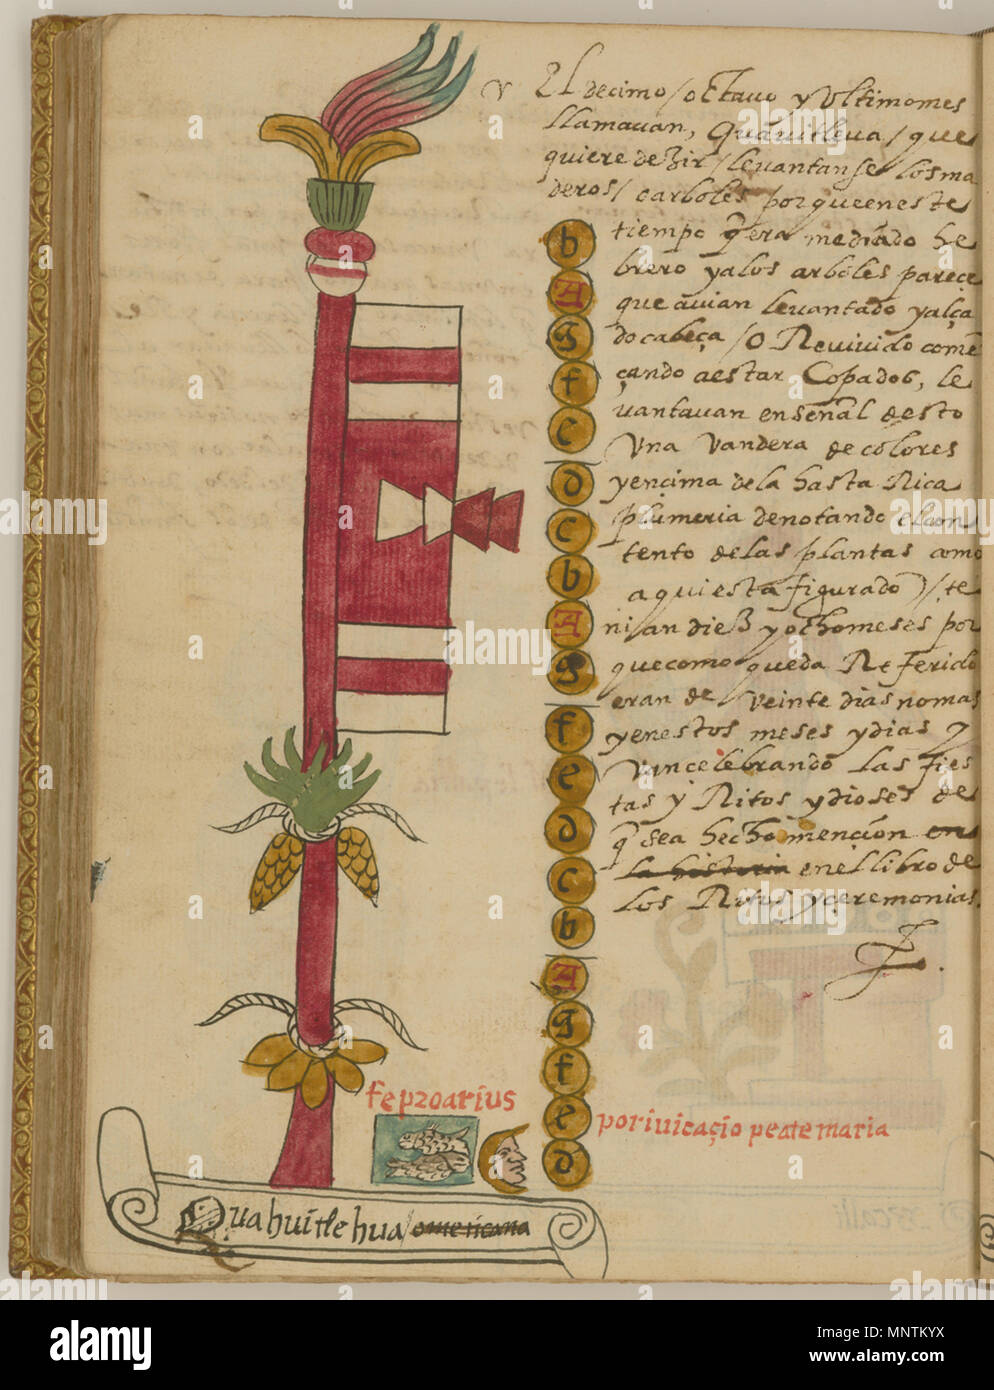 El decimo / octavo y Ultimo mes
llamavan, Quavitleva / que
quiere dezir / levantanse los ma
deros / o arboles porque en este
tiempo q̃ era mediado he
brero ya los arboles pareçe
que avian levantado y alça
do cabeça / o Revivido comē
çando a estar Copados, le
vantavan en señal desto
Una Vandera de colores
y encima de la hasta Rica
plumeria denotando el con
tento de las plantas como
aqui esta figurado) / te
nian diez y ocho meses por
que como queda Referido
eran de veinte dias no mas
y en estos meses y dias y
van celebrando las fies
tas y Ritos y dioses de
q̃ sea hecho mençion en
la historia en el libro de
los Ritos y çeremonias.
b
A
g
f
e
d
c
b
A
g
f
e
d
c
b
A
g
f
e
d
porivicaçio peatemaria
Quahuitlehua /
alamy
Image ID: MNTKYX
www.alamy.com